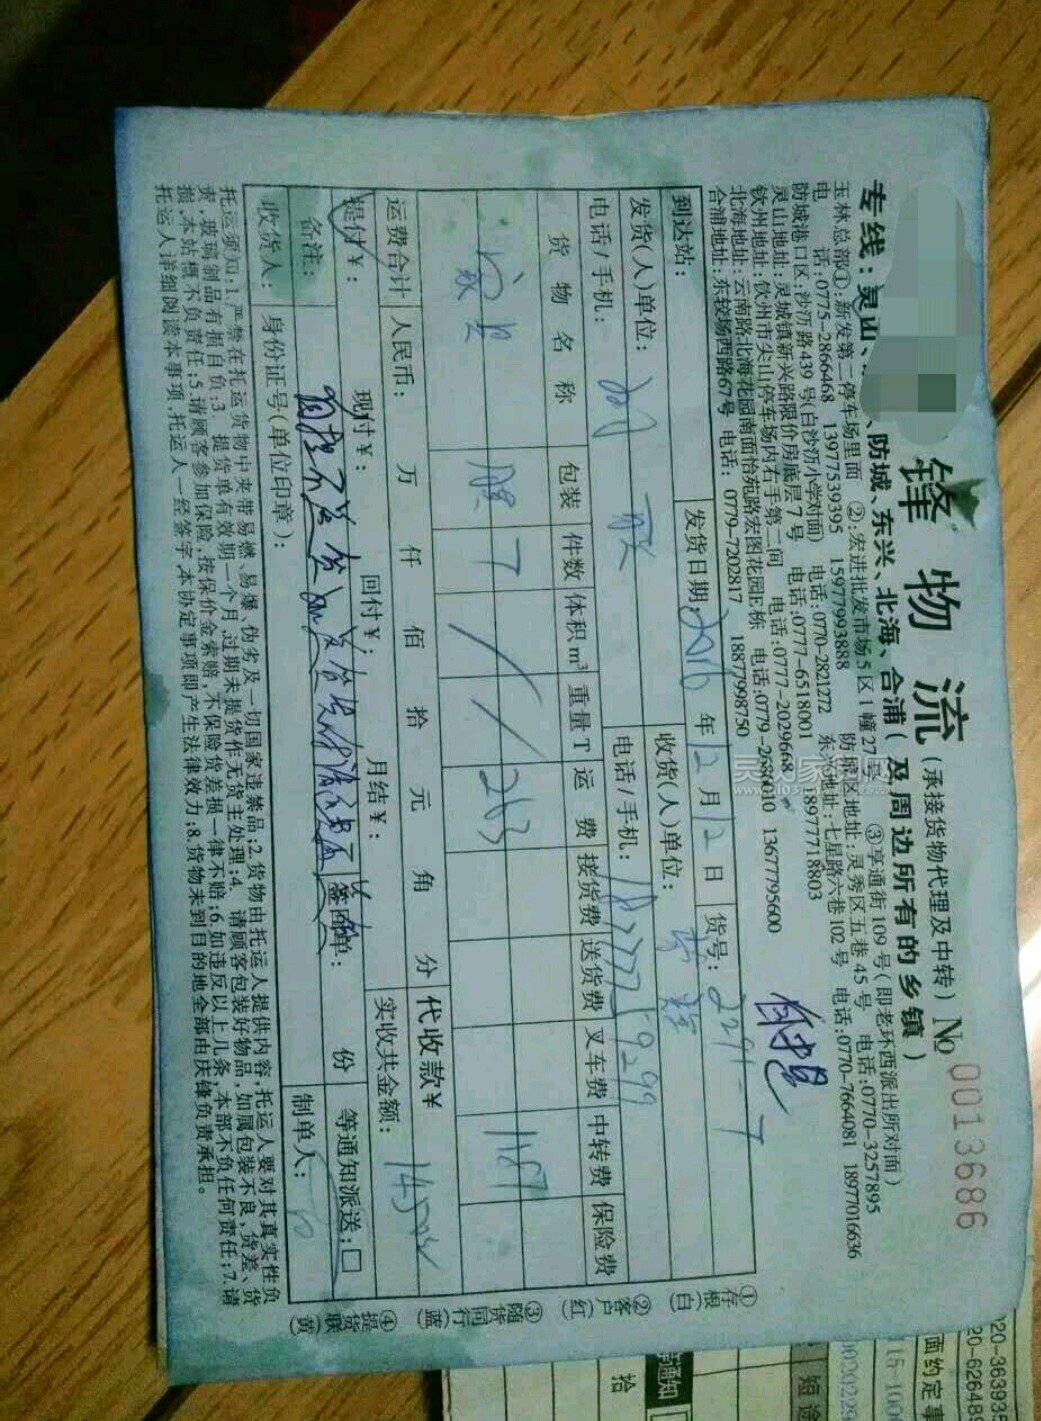 锋 物 流 (承接货物代理及中转) № 0013686
专线:灵山、防城、东兴、北海、合浦(及周边所有的乡镇)
玉林总部①:新发第二停车场里面 ②:宏进批发市场5区1幢27号 ③享通街109号(即老环西派出所对面)
电 话:0775-2866468 13977539395 15977993888 防城区地址:灵秀区五巷45号 电话:0770-3257895
防城港口区:沙沥路439号(白沙沥小学对面) 电话:0770-2821272 东兴地址:七星路六巷102号 电话:0770-7664081 18977016636
灵山地址:灵城镇新兴路限价房底层7号 电话:0777-6518001 18977718803
钦州地址:钦州市尖山停车场内右手第二间 电话:0777-2029668
北海地址:云南路北海花园南面怡苑路宏图花园E栋 电话:0779-2680010 13677795600
合浦地址:东较场西路67号 电话:0779-7202817 18877998750
到达站: 发货日期:2016年12月12日 货号:2291-7
发货(人)单位: 收货(人)单位:
电话/手机: 电话/手机:18777259299
货物名称 包装 件数 体积m³ 重量T 运费 接货费 送货费 叉车费 中转费 保险费
7 263 1187
运费合计 人民币: 万 仟 佰 拾 元 角 分 代收款¥
提付¥: 现付¥: 回付¥: 月结¥: 实收共金额:1450
备注: 签回单: 份 等通知派送:□
收货人: 身份证号(单位印章): 制单人:
托运须知:1.严禁在托运货物中夹带易燃、易爆、伪劣及一切国家违禁品;2.货物由托运人提供内容,托运人要对其真实性负
责,玻璃制品有损自负;3.提货单有效期一个月,过期未提货作无货主处理;4.请顾客包装好物品,如属包装不良,货差、货
损,本站概不负责任;5.请顾客参加保险,按保价金索赔,不保险货差损一律不赔;6.如违反以上几条,本部不负任何责任;7.请
托运人详细阅读本事项,托运人一经签字,本协定事项即产生法律效力;8.货物未到目的地全部由庆锋负责承担。
①存根(白) ②客户(红) ③随货同行(蓝) ④提货联(黄)